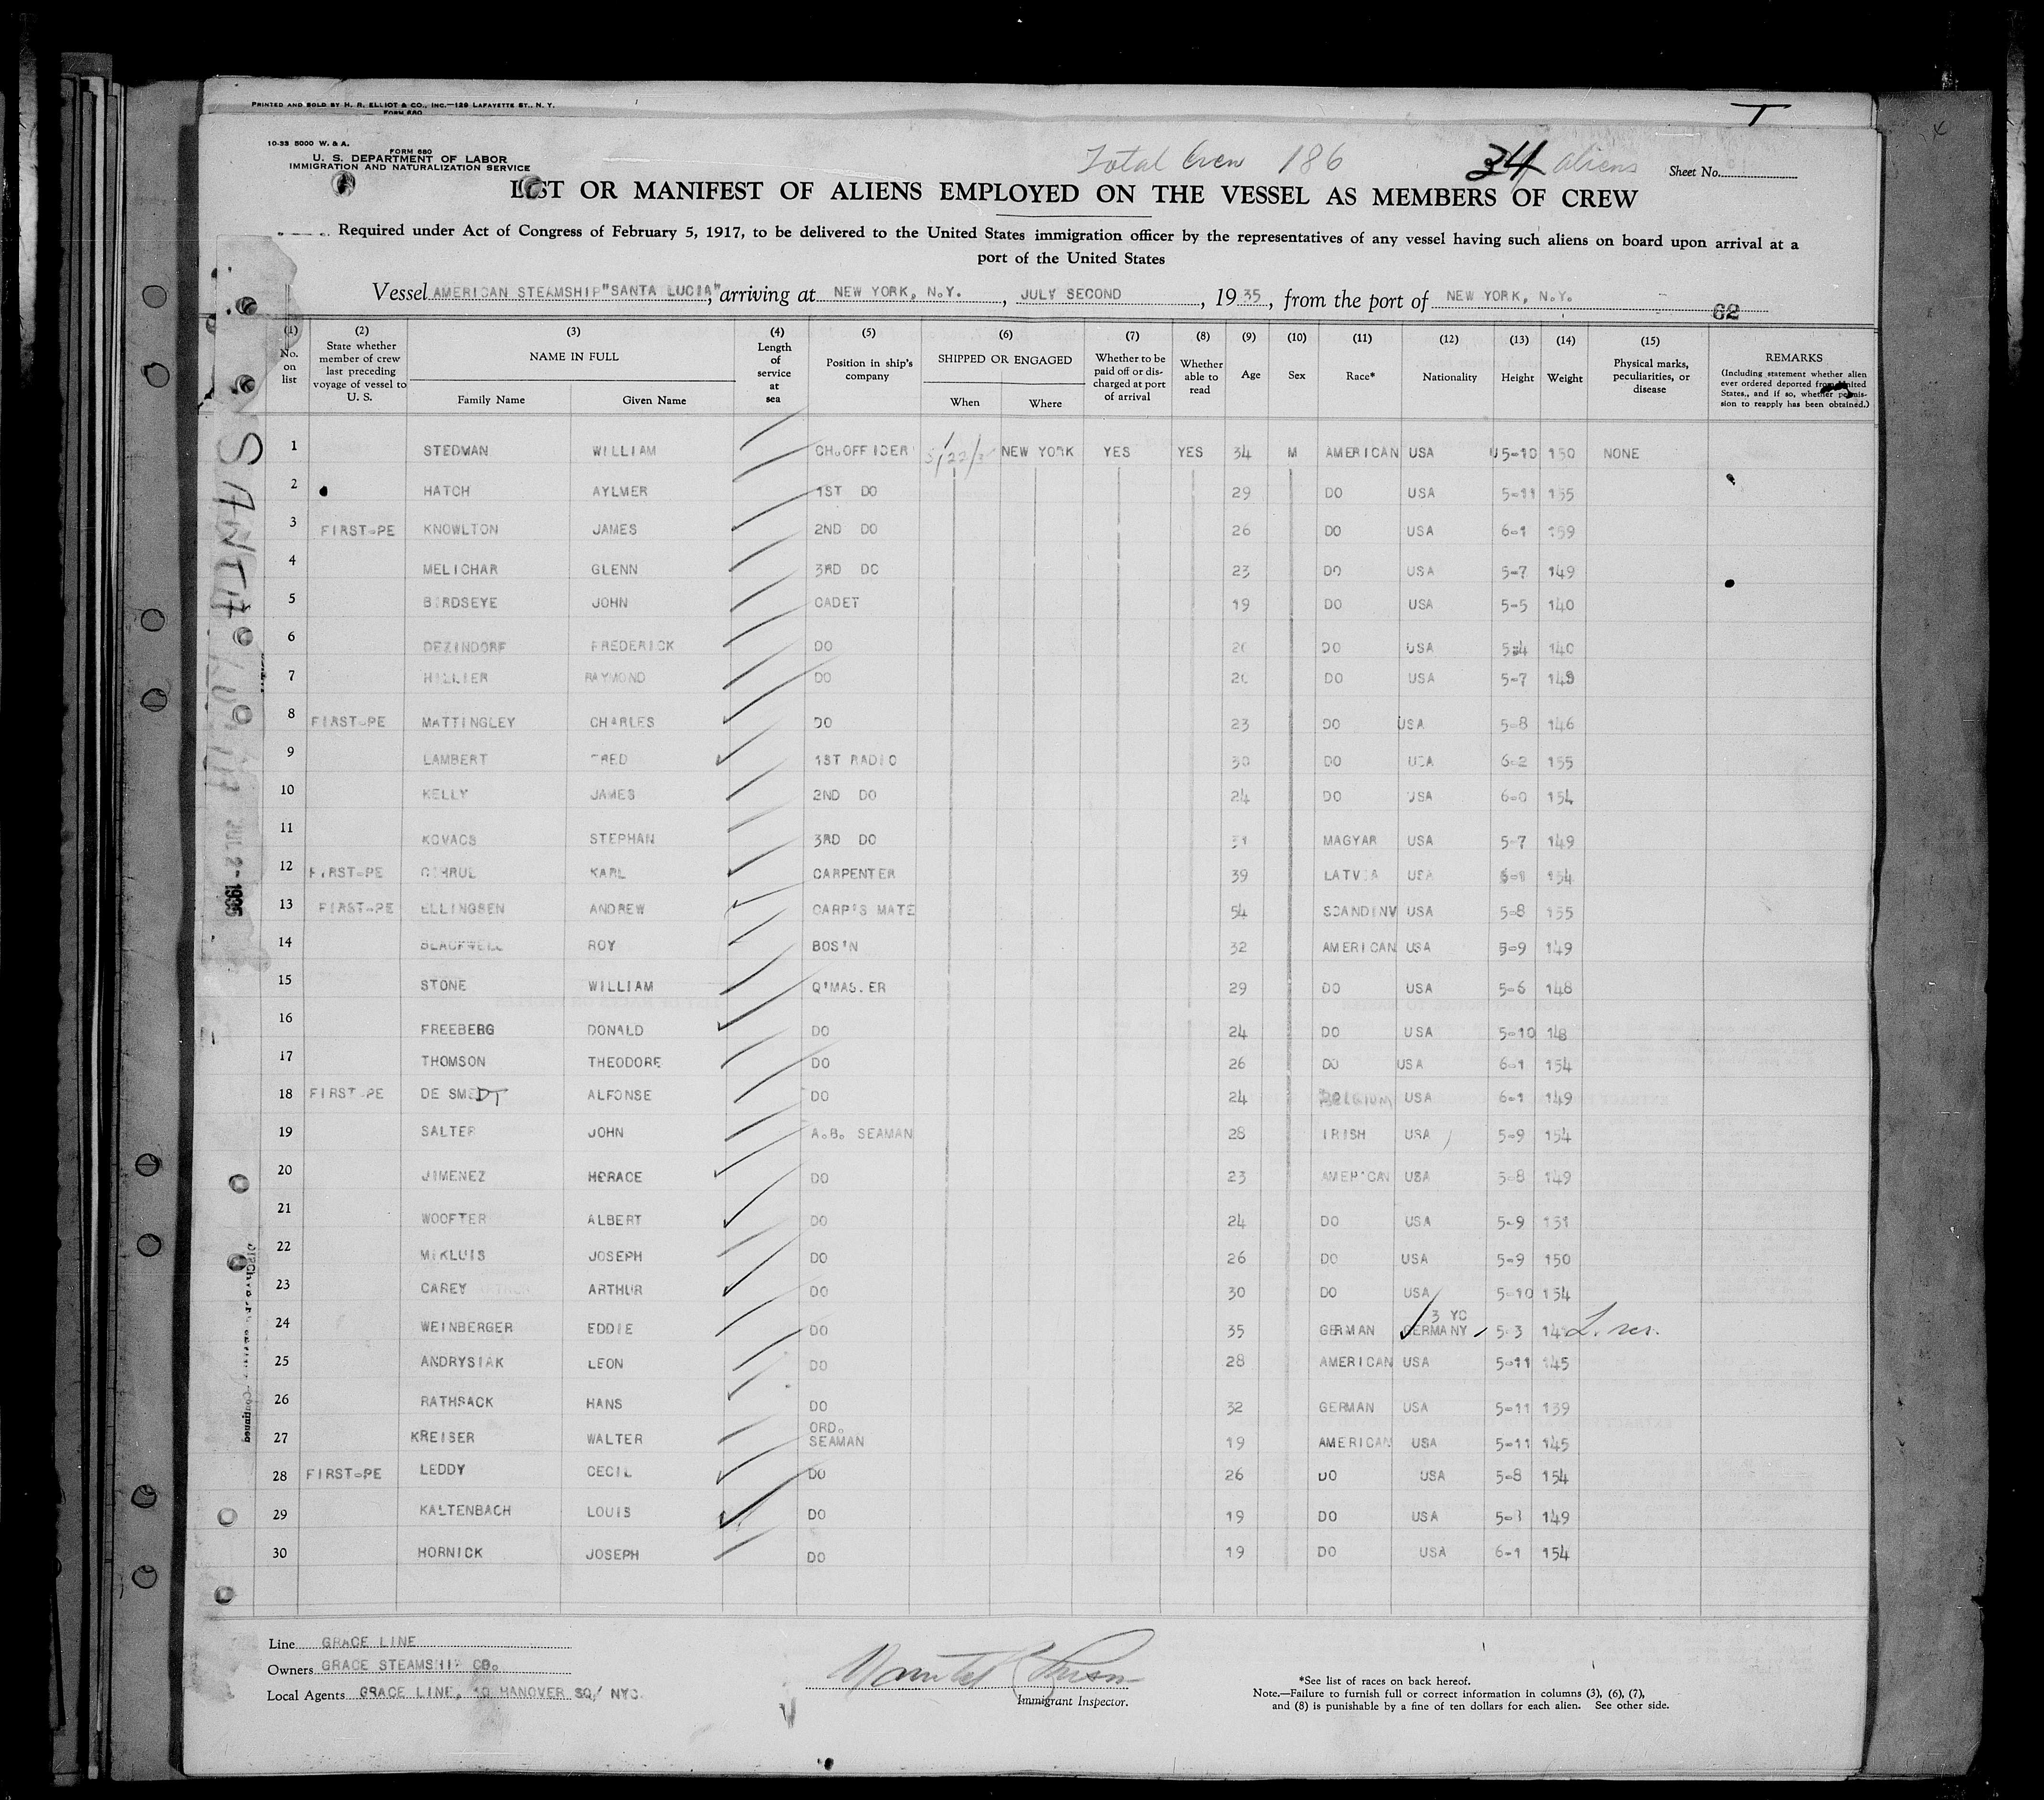 PRINTED AND SOLD BY H. R. ELLIOT & CO., INC.—129 LAFAYETTE ST., N. Y.
FORM 680
10-33 5000 W. & A.
FORM 680
U. S. DEPARTMENT OF LABOR
IMMIGRATION AND NATURALIZATION SERVICE
Total Crew 186 34 aliens Sheet No.
LIST OR MANIFEST OF ALIENS EMPLOYED ON THE VESSEL AS MEMBERS OF CREW
Required under Act of Congress of February 5, 1917, to be delivered to the United States immigration officer by the representatives of any vessel having such aliens on board upon arrival at a
port of the United States
Vessel AMERICAN STEAMSHIP "SANTA LUCIA", arriving at NEW YORK, N.Y., JULY SECOND, 1935, from the port of NEW YORK, N.Y.
62
(1) No. on list
(2) State whether member of crew last preceding voyage of vessel to U. S.
(3) NAME IN FULL Family Name Given Name
(4) Length of service at sea
(5) Position in ship's company
(6) SHIPPED OR ENGAGED When Where
(7) Whether to be paid off or discharged at port of arrival
(8) Whether able to read
(9) Age
(10) Sex
(11) Race*
(12) Nationality
(13) Height
(14) Weight
(15) Physical marks, peculiarities, or disease
REMARKS (Including statement whether alien ever ordered deported from United States, and if so, whether permission to reapply has been obtained.)
1 STEDMAN WILLIAM CH.OFFICER 5/22/35 NEW YORK YES YES 34 M AMERICAN USA 5-10 150 NONE
2 HATCH AYLMER 1ST DO 29 DO USA 5-11 155
3 FIRST-PE KNOWLTON JAMES 2ND DO 26 DO USA 6-1 159
4 MELICHAR GLENN 3RD DO 23 DO USA 5-7 149
5 BIRDSEYE JOHN CADET 19 DO USA 5-5 140
6 DEZINDORF FREDERICK DO DO USA 5-4 140
7 HILLIER RAYMOND DO DO USA 5-7 149
8 FIRST-PE MATTINGLEY CHARLES DO 23 DO USA 5-8 146
9 LAMBERT FRED 1ST RADIO 30 DO USA 6-2 155
10 KELLY JAMES 2ND DO 24 DO USA 6-0 154
11 KOVACS STEPHAN 3RD DO 31 MAGYAR USA 5-7 149
12 FIRST-PE KARL CARPENTER 39 LATVIA USA 154
13 FIRST-PE ELLINGSEN ANDREW CARP'S MATE 54 SCANDINV USA 5-8 155
14 BLACKWELL ROY BOS'N 32 AMERICAN USA 5-9 149
15 STONE WILLIAM Q'MAS.ER 29 DO USA 5-6 148
16 FREEBERG DONALD DO 24 DO USA 5-10 148
17 THOMSON THEODORE DO 26 DO USA 6-1 154
18 FIRST-PE DE SMEDT ALFONSE DO 24 BELGIUM USA 6-1 149
19 SALTER JOHN A.B. SEAMAN 28 IRISH USA 5-9 154
20 JIMENEZ HORACE DO 23 AMERICAN USA 5-8 149
21 WOOFTER ALBERT DO 24 DO USA 5-9 151
22 MIKLUIS JOSEPH DO 26 DO USA 5-9 150
23 CAREY ARTHUR DO 30 DO USA 5-10 154
24 WEINBERGER EDDIE DO 35 GERMAN GERMANY 5-3 L. res.
25 ANDRYSIAK LEON DO 28 AMERICAN USA 5-11 145
26 RATHSACK HANS DO 32 GERMAN USA 5-11 139
27 KREISER WALTER ORD. SEAMAN 19 AMERICAN USA 5-11 145
28 FIRST-PE LEDDY CECIL DO 26 DO USA 5-8 154
29 KALTENBACH LOUIS DO 19 DO USA 149
30 HORNICK JOSEPH DO 19 DO USA 6-1 154
SANTA LUCIA JUL 2- 1935
Line GRACE LINE
Owners GRACE STEAMSHIP CO.
Local Agents GRACE LINE, 10 HANOVER SQ/ NYC.
Immigrant Inspector.
*See list of races on back hereof.
Note.—Failure to furnish full or correct information in columns (3), (6), (7),
and (8) is punishable by a fine of ten dollars for each alien. See other side.